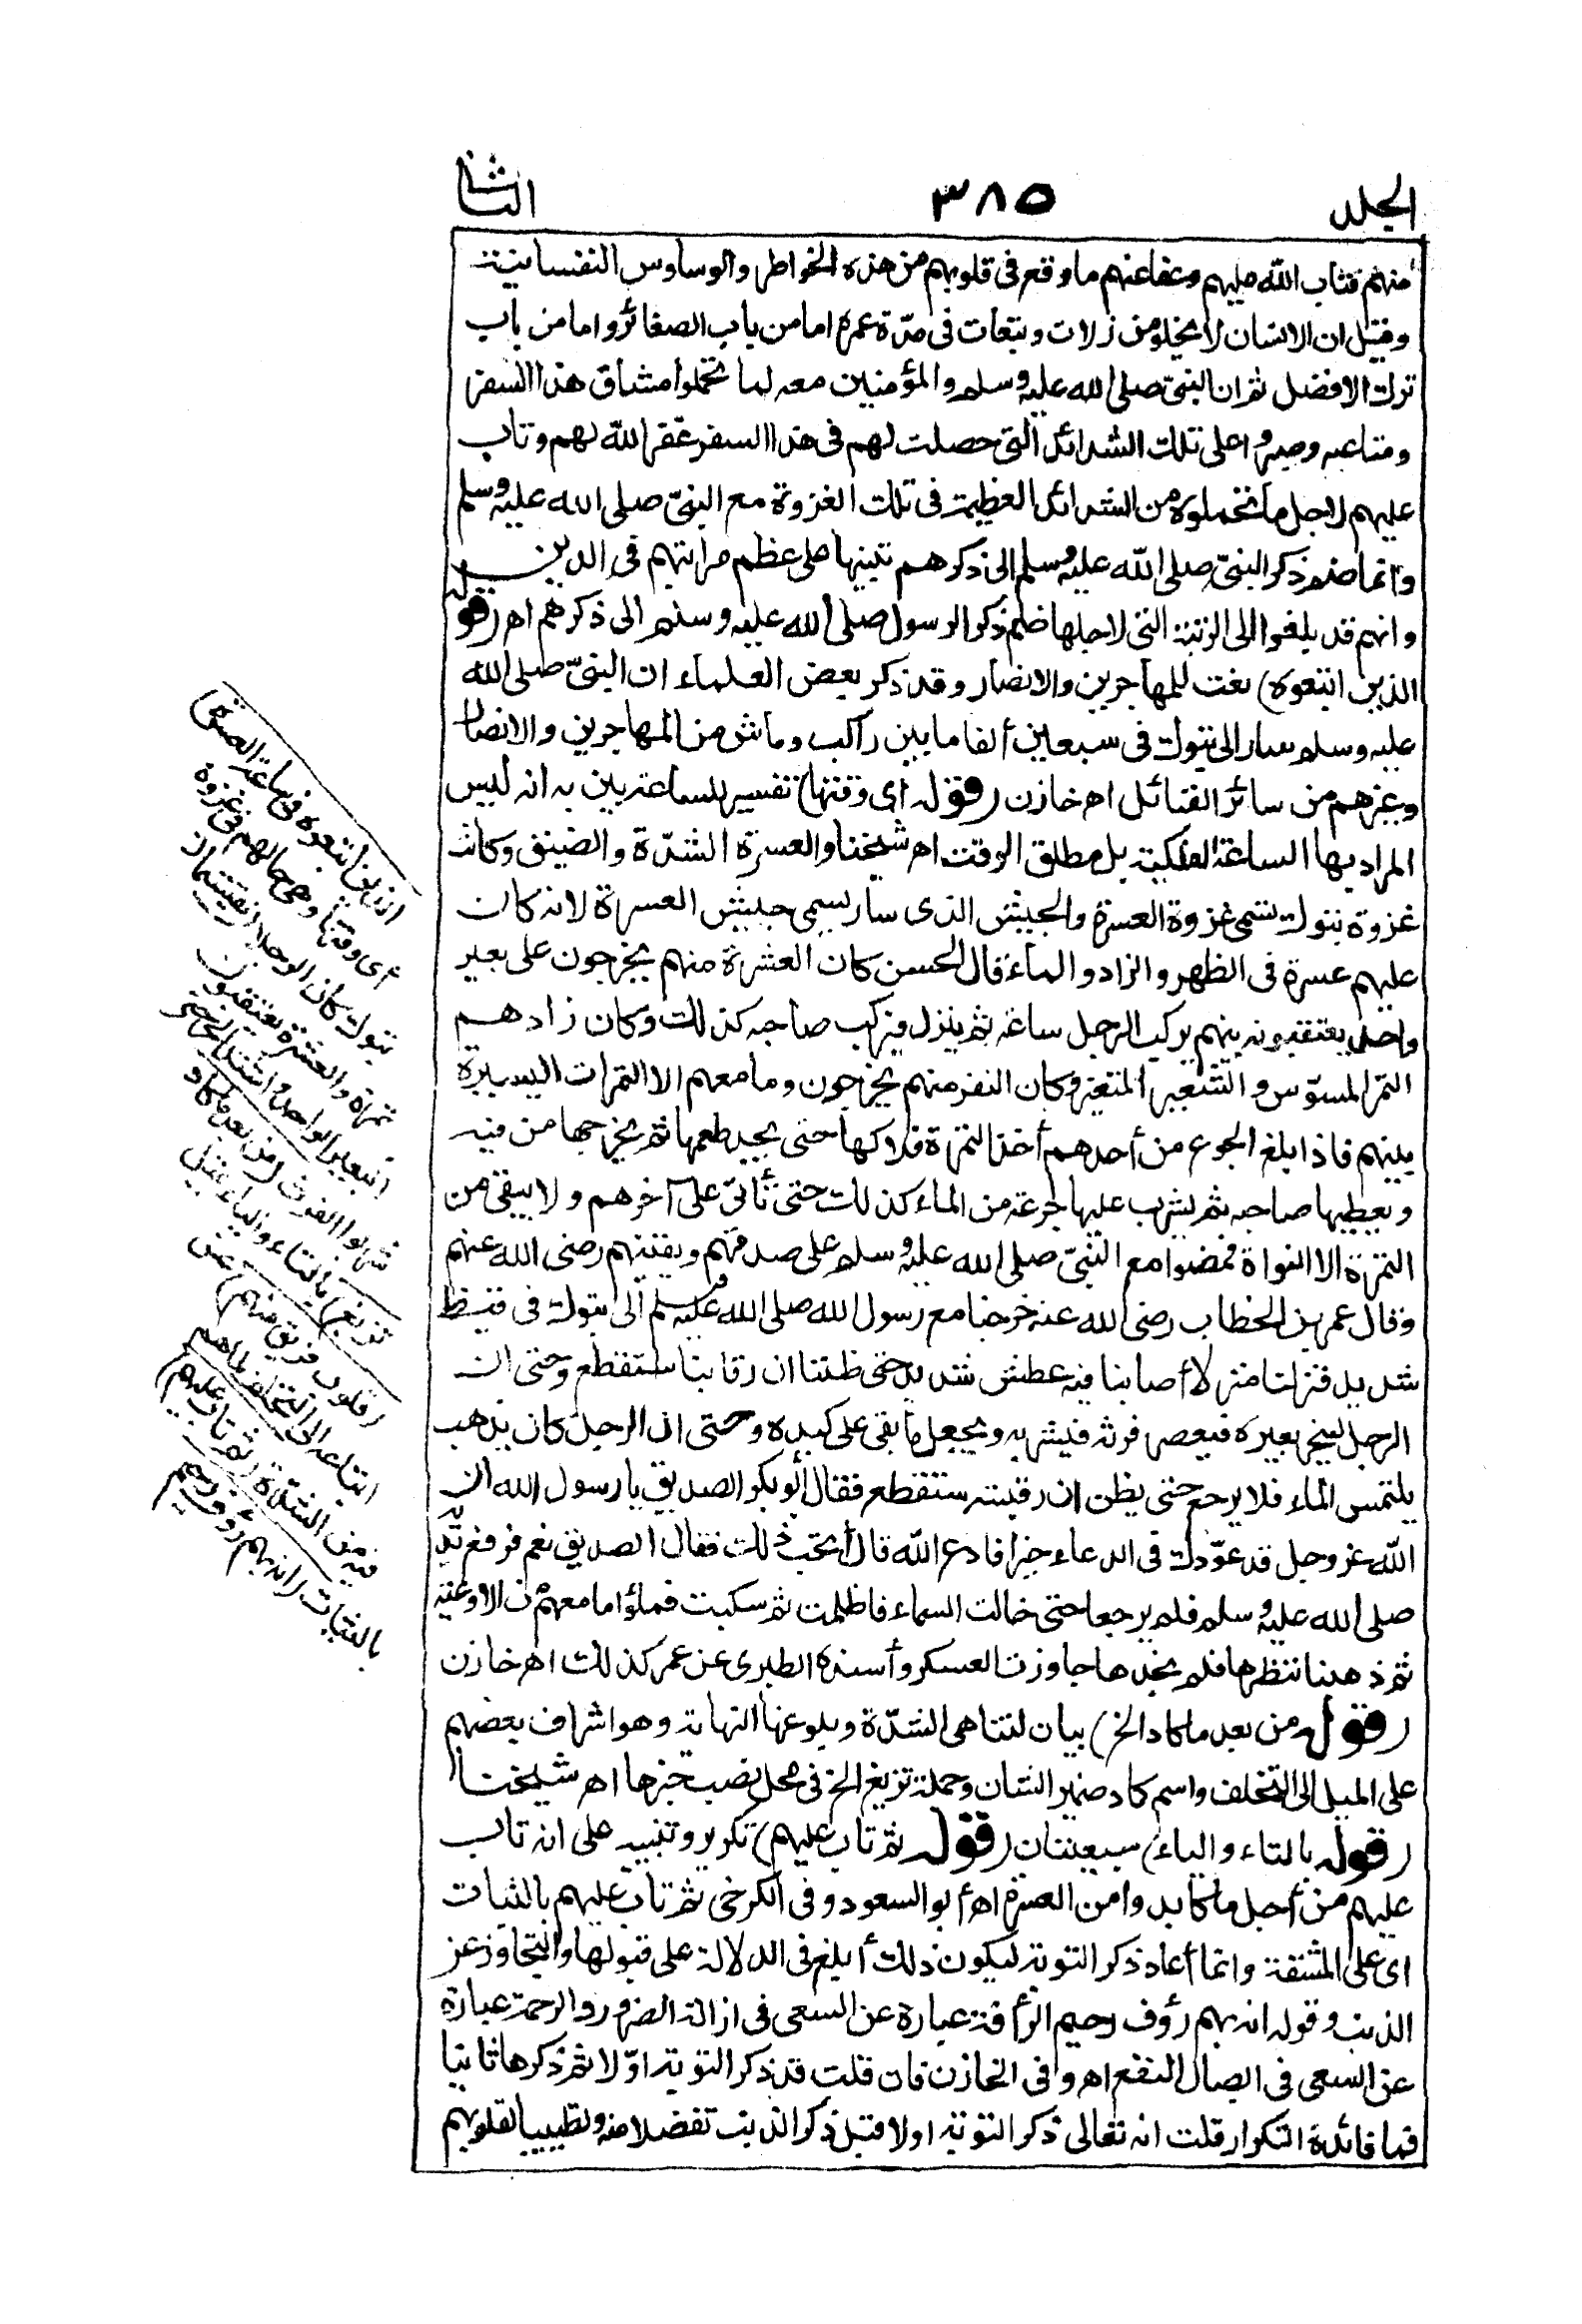 الجلد ٣٨٥ الثانى
منهم فتاب الله عليهم وعفا عنهم ما وقع فى قلوبهم من هذه الخواطر والوساوس النفسانية
وقيل ان الانسان لا يخلو من زلات وتبعات فى مدّة عمره اما من باب الصغائر واما من باب
ترك الافضل ثم ان النبىّ صلى الله عليه وسلم والمؤمنين معه لما تحملوا مشاق هذا السفر
ومتاعبه وصبروا على تلك الشدائد التى حصلت لهم فى هذا السفر غفر الله لهم وتاب
عليهم لاجل ما تحملوه من الشدائد العظيمة فى تلك الغزوة مع النبىّ صلى الله عليه وسلم
وانما ضم ذكر النبىّ صلى الله عليه وسلم الى ذكرهم تنبيها على عظم مراتبهم فى الدين
وانهم قد بلغوا الى الرتبة التى لاجلها ضم ذكر الرسول صلى الله عليه وسلم الى ذكرهم اهـ (قوله
الذين اتبعوه) نعت للمهاجرين والانصار وقد ذكر بعض العلماء ان النبىّ صلى الله
عليه وسلم سار الى تبوك فى سبعين ألفا ما بين راكب وماش من المهاجرين والانصار
وغيرهم من سائر القبائل اهـ خازن (قوله اى وقتها) تفسير للساعة بين به انه ليس
المراد بها الساعة الفلكية بل مطلق الوقت اهـ شيخنا والعسرة الشدّة والضيق وكانت
غزوة تبوك تسمى غزوة العسرة والجيش الذى سار يسمى جيش العسرة لانه كان
عليهم عسرة فى الظهر والزاد والماء قال الحسن كان العشرة منهم يخرجون على بعير
واحد يعتقبونه بينهم يركب الرجل ساعة ثم ينزل فيركب صاحبه كذلك وكان زادهم
التمر المسوّس والشعير المتغير وكان النفر منهم يخرجون وما معهم الا التمرات اليسيرة
بينهم فاذا بلغ الجوع من أحدهم أخذ التمرة فلاكها حتى يجد طعمها ثم يخرجها من فيه
ويعطيها صاحبه ثم يشرب عليها جرعة من الماء كذلك حتى تأتى على آخرهم ولا يبقى من
التمرة الا النواة فمضوا مع النبىّ صلى الله عليه وسلم على صدقهم ويقينهم رضى الله عنهم
وقال عمر بن الخطاب رضى الله عنه خرجنا مع رسول الله صلى الله عليه وسلم الى تبوك فى قيظ
شديد فنزلنا منزلا أصابنا فيه عطش شديد حتى ظننا ان رقابنا ستقطع وحتى ان
الرجل لينحر بعيره فيعصر فرثه فيشربه ويجعل ما بقى على كبده وحتى ان الرجل كان يذهب
يلتمس الماء فلا يرجع حتى يظن ان رقبته ستقطع فقال أبو بكر الصديق يا رسول الله ان
الله عز وجل قد عوّدك فى الدعاء خيرا فادع الله قال أتحب ذلك فقال الصديق نعم فرفع يديه
صلى الله عليه وسلم فلم يرجعا حتى خالت السماء فاظلمت ثم سكبت فملؤا ما معهم من الاوعية
ثم ذهبنا ننظرها فلم نجدها جاوزت العسكر وأسنده الطبرى عن عمر كذلك اهـ خازن
(قوله من بعد ما كاد الخ) بيان لتناهى الشدّة وبلوغها النهاية وهو اشراف بعضهم
على الميل الى التخلف واسم كاد ضمير الشان وجملة تزيغ الخ فى محل نصب خبرها اهـ شيخنا
(قوله بالتاء والياء) سبعيتان (قوله ثم تاب عليهم) تكرير وتنبيه على انه تاب
عليهم من أجل ما كابدوا من العسرة اهـ أبو السعود وفى الكرخى ثم تاب عليهم بالثبات
اى على المشقة وانما أعاد ذكر التوبة ليكون ذلك أبلغ فى الدلالة على قبولها والتجاوز عن
الذنب وقوله انه بهم رؤف رحيم الرأفة عبارة عن السعى فى ازالة الضرر والرحمة عبارة
عن السعى فى ايصال النفع اهـ وفى الخازن فان قلت قد ذكر التوبة اوّلا ثم ذكرها ثانيا
فما فائدة التكرار قلت انه تعالى ذكر التوبة اولا قبل ذكر الذنب تفضلا منه وتطييبا لقلوبهم
الذين اتبعوه فى ساعة العسرة)
أى وقتها وهى حالهم فى غزوة
تبوك كان الرجلان يقتسمان
تمرة والعشرة يعتقبون
البعير الواحد واشتد الحر حتى
شربوا الفرث (من بعد ما كاد
تزيغ) بالتاء والياء تميل
(قلوب فريق منهم) عن
اتباعه الى التخلف لما هم
فيه من الشدّة (ثم تاب عليهم)
بالثبات (انه بهم رؤف رحيم